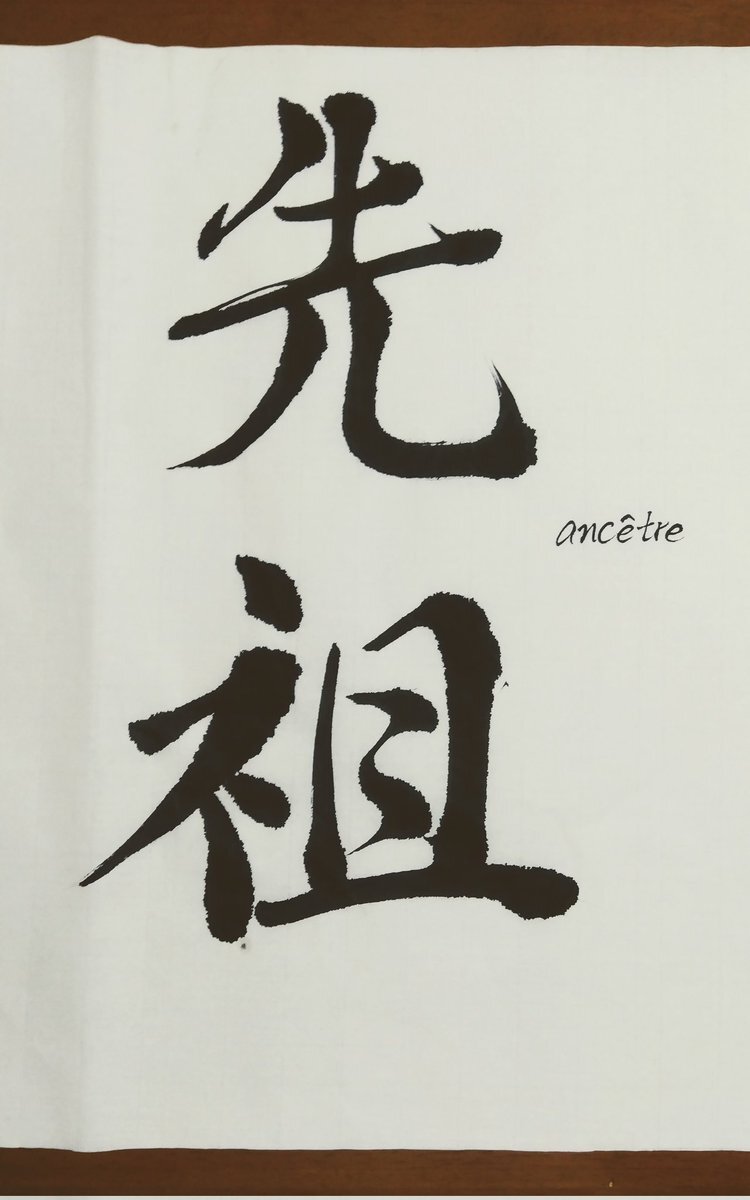 先祖
ancêtre